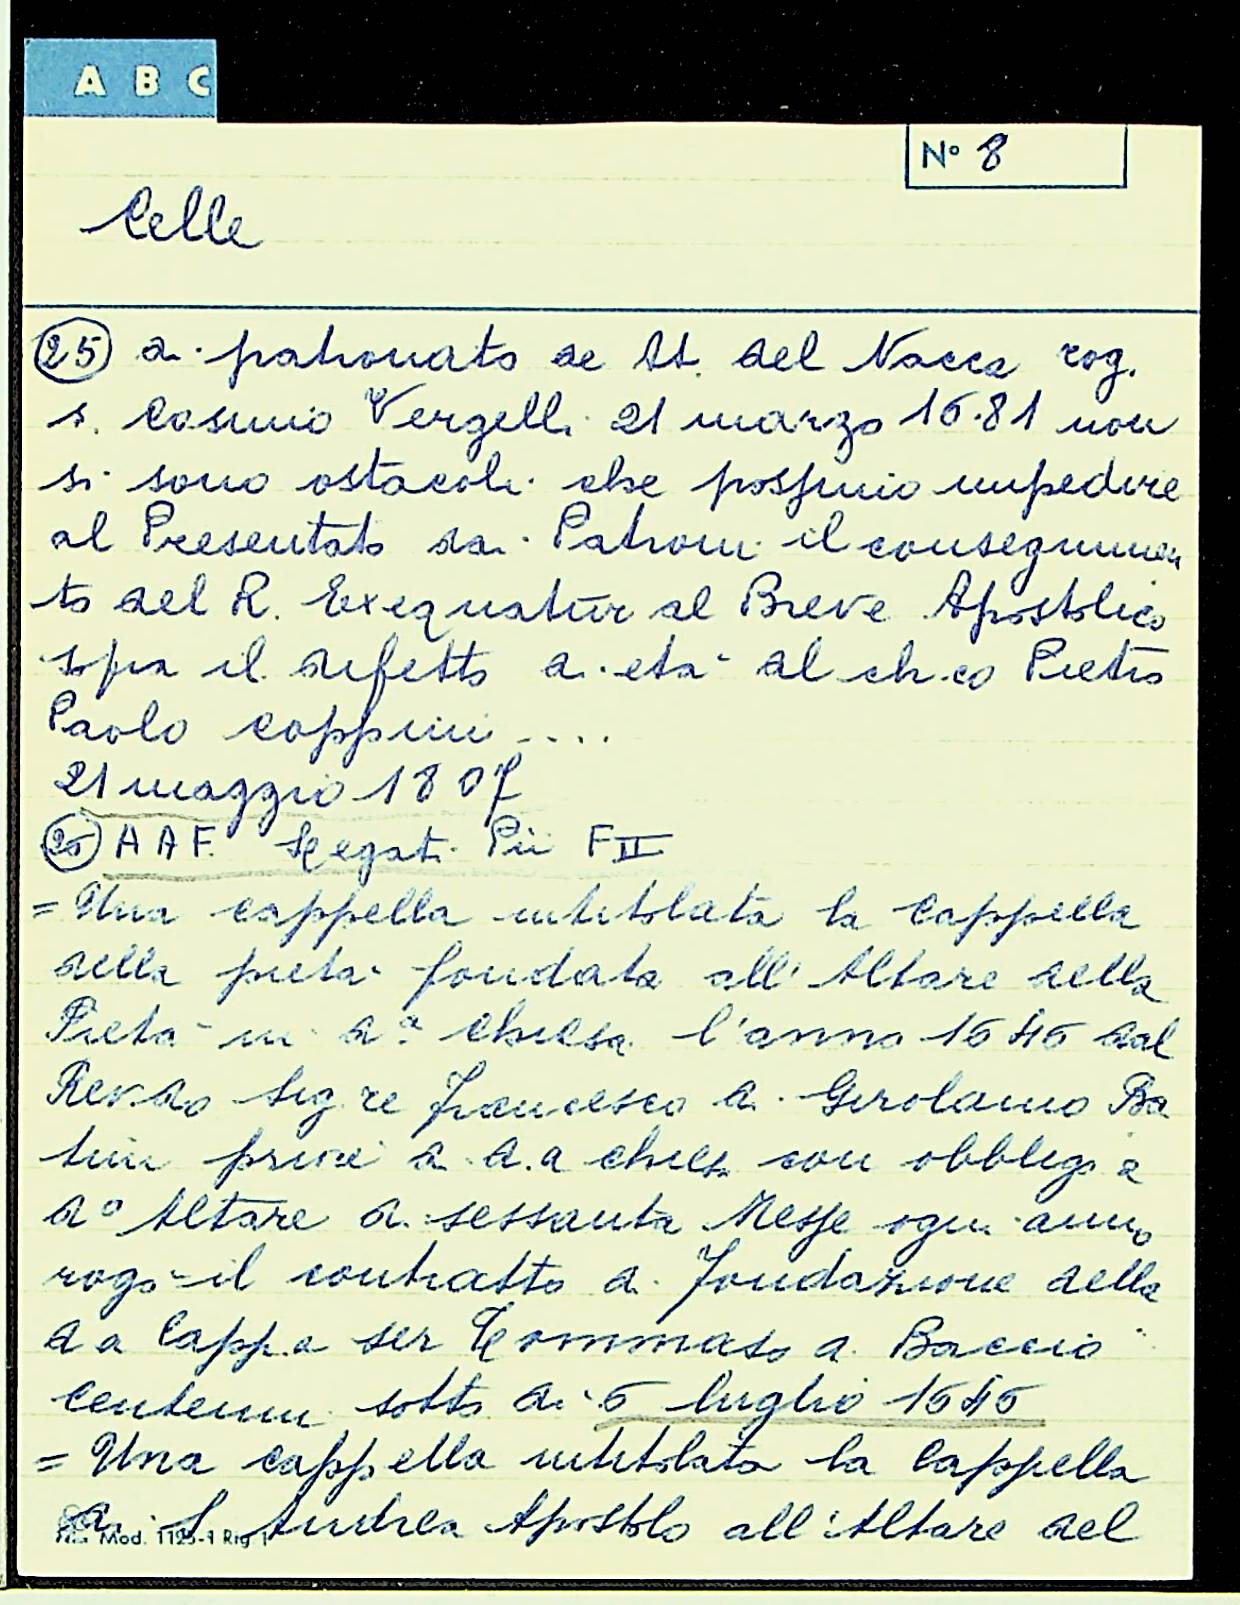 A B C
N° 8
Celle
25 di patronato de St. del Nacca rog.
s. Cosimo Vergelli 21 marzo 1681 non
si sono ostacoli che possino impedire
al Presentato da Patroni il conseguimen
to del R. Exequatur al Breve Apostolico
sopra il difetto di età al ch.co Pietro
Paolo Coppini ....
21 maggio 1807
25 A A F. Legati Pii F II
= Una cappella intitolata la Cappella
della pietà fondata all'Altare della
Pietà in d.a chiesa l'anno 1545 dal
Rev.do Sig.re Francesco di Girolamo Ba
tini priore di d.a chiesa con obbligo a
d° Altare di sessanta Messe ogni anno
rogò il contratto di fondazione della
d a Capp.a ser Tommaso di Baccio
Centenni sotto di 5 luglio 1545
= Una cappella intitolata la Cappella
di S Andrea Apostolo all'Altare del
Mod. 1125-1 Rig 1